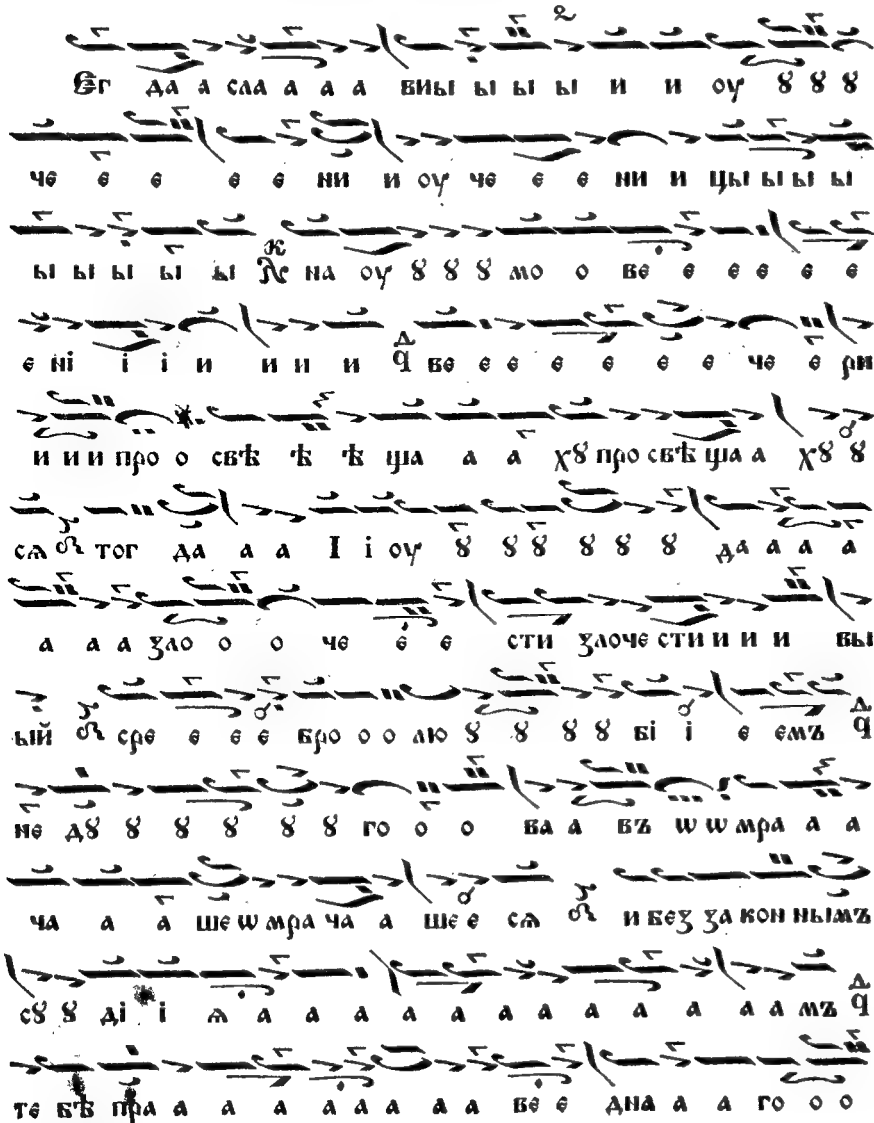 Єг да а сла а а а виы ы ы ы и и оу ꙋ ꙋ ꙋ
че е е е е ни и оу че е е ни и цы ы ы ы
ы ы ы ы ы на оу ꙋ ꙋ ꙋ мо о ве е е е е е
е ні і і и и и и ве е е е е е е че е ри
и и и про о свѣ ѣ ѣ ща а а хꙋ про свѣ ща а хꙋ ꙋ
сѧ тог да а а І і оу ꙋ ꙋ ꙋ ꙋ ꙋ ꙋ да а а а
а а а ꙁло о о че е е сти ꙁлоче сти и и и вы
ый сре е е е бро о о лю ꙋ ꙋ ꙋ ꙋ бі і е емъ
не дꙋ ꙋ ꙋ ꙋ ꙋ ꙋ го о о ва а въ ѡ ѡ мра а а
ча а а ше ѡ мра ча а ше е сѧ и беꙁ ꙁа кон нымъ
сꙋ ꙋ ді і ѧ а а а а а а а а а а а мъ
те бѣ пра а а а а а а а а ве е дна а а го о о